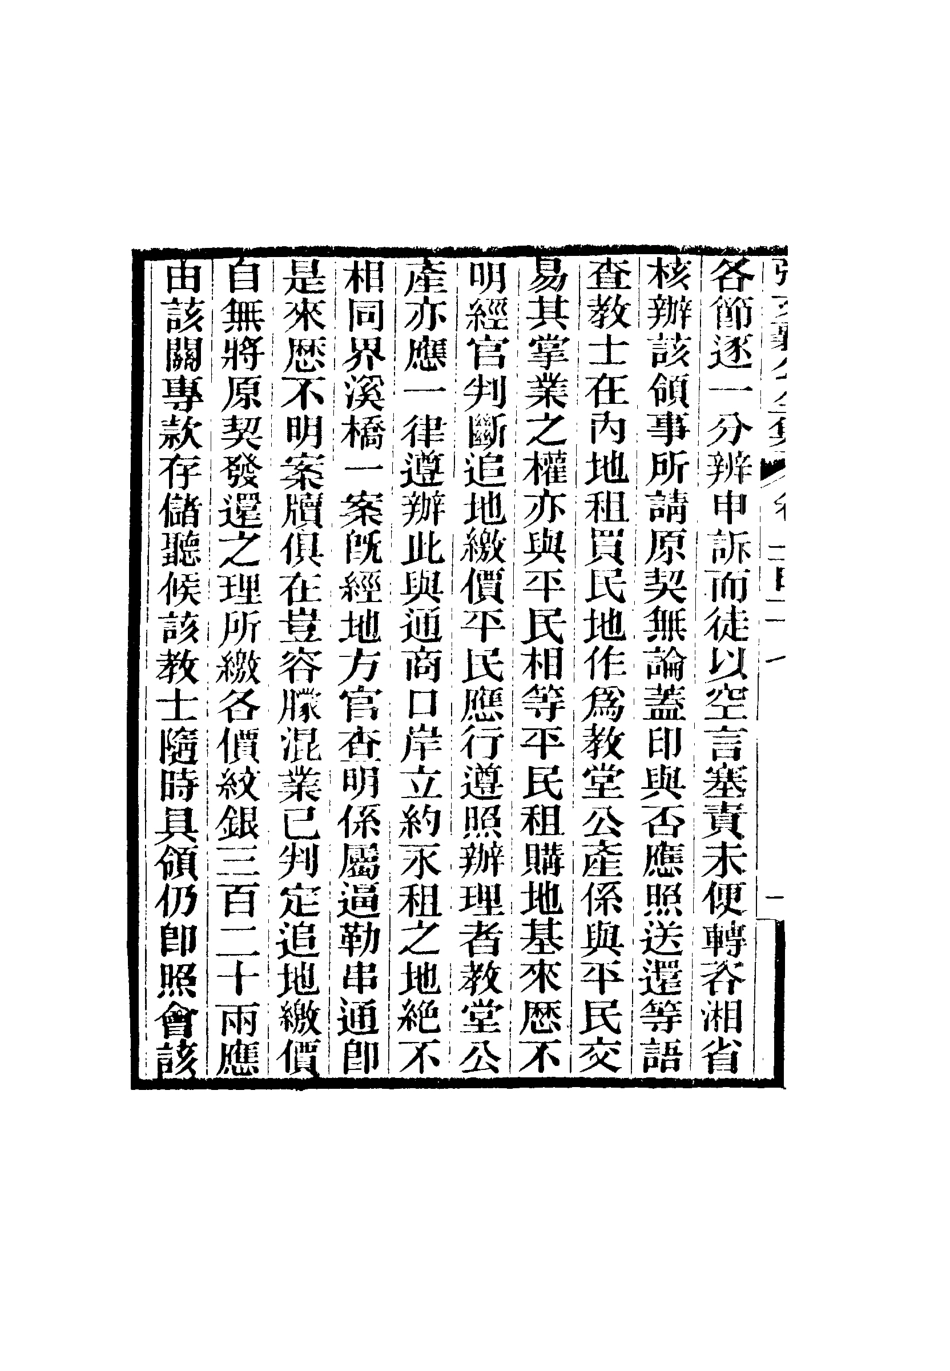 各節逐一分辨申訴而徒以空言塞責未便轉咨湘省
核辦該領事所請原契無論蓋印與否應照送還等語
查教士在內地租買民地作爲教堂公產係與平民交
易其掌業之權亦與平民相等平民租購地基來歷不
明經官判斷追地繳價平民應行遵照辦理者教堂公
產亦應一律遵辦此與通商口岸立約永租之地絕不
相同界溪橋一案旣經地方官查明係屬逼勒串通卽
是來歷不明案牘俱在豈容朦混業已判定追地繳價
自無將原契發還之理所繳各價紋銀三百二十兩應
由該關專款存儲聽候該教士隨時具領仍卽照會該